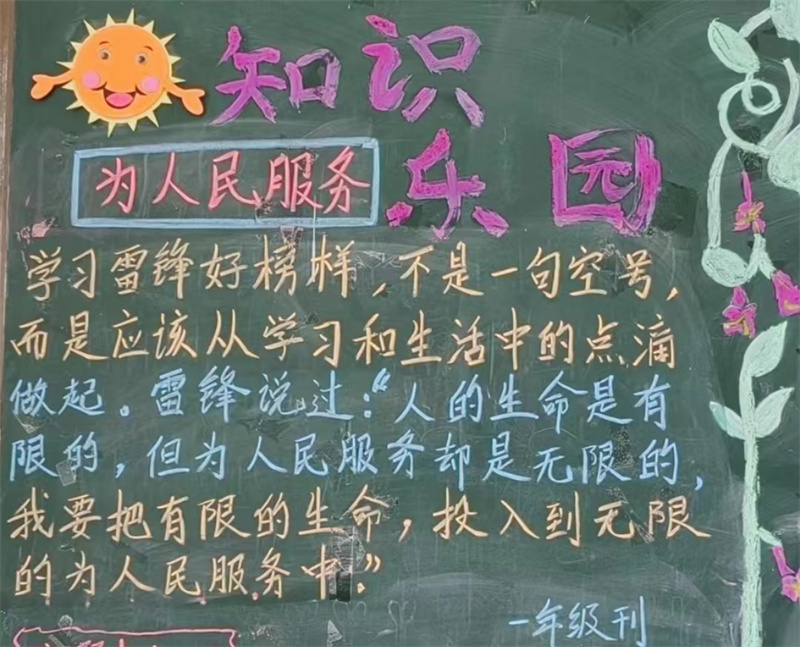 知识
乐园
为人民服务
学习雷锋好榜样,不是一句空号,
而是应该从学习和生活中的点滴
做起。雷锋说过:“人的生命是有
限的,但为人民服务却是无限的,
我要把有限的生命,投入到无限
的为人民服务中.”
一年级刊